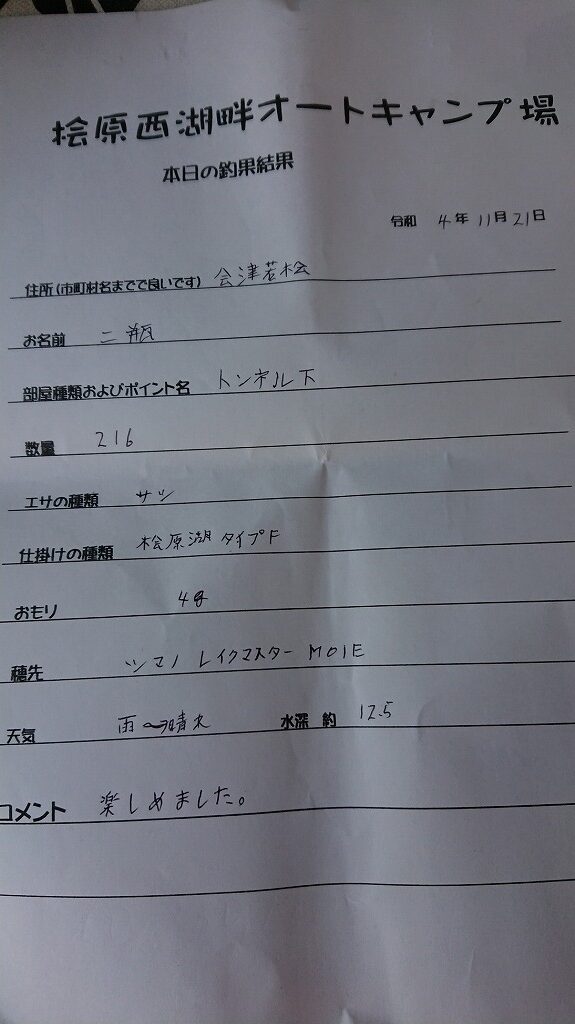 桧原西湖畔オートキャンプ場
本日の釣果結果
令和 4年 11月 21日
住所(市町村名まででで良いです) 会津若松
お名前 二瓶
部屋種類およびポイント名 トンネル下
数量 216
エサの種類 サシ
仕掛けの種類 桧原湖 タイプF
おもり 4g
穂先 シマノ レイクマスター M01E
天気 雨〜晴天 水深 約 12.5
コメント 楽しめました。